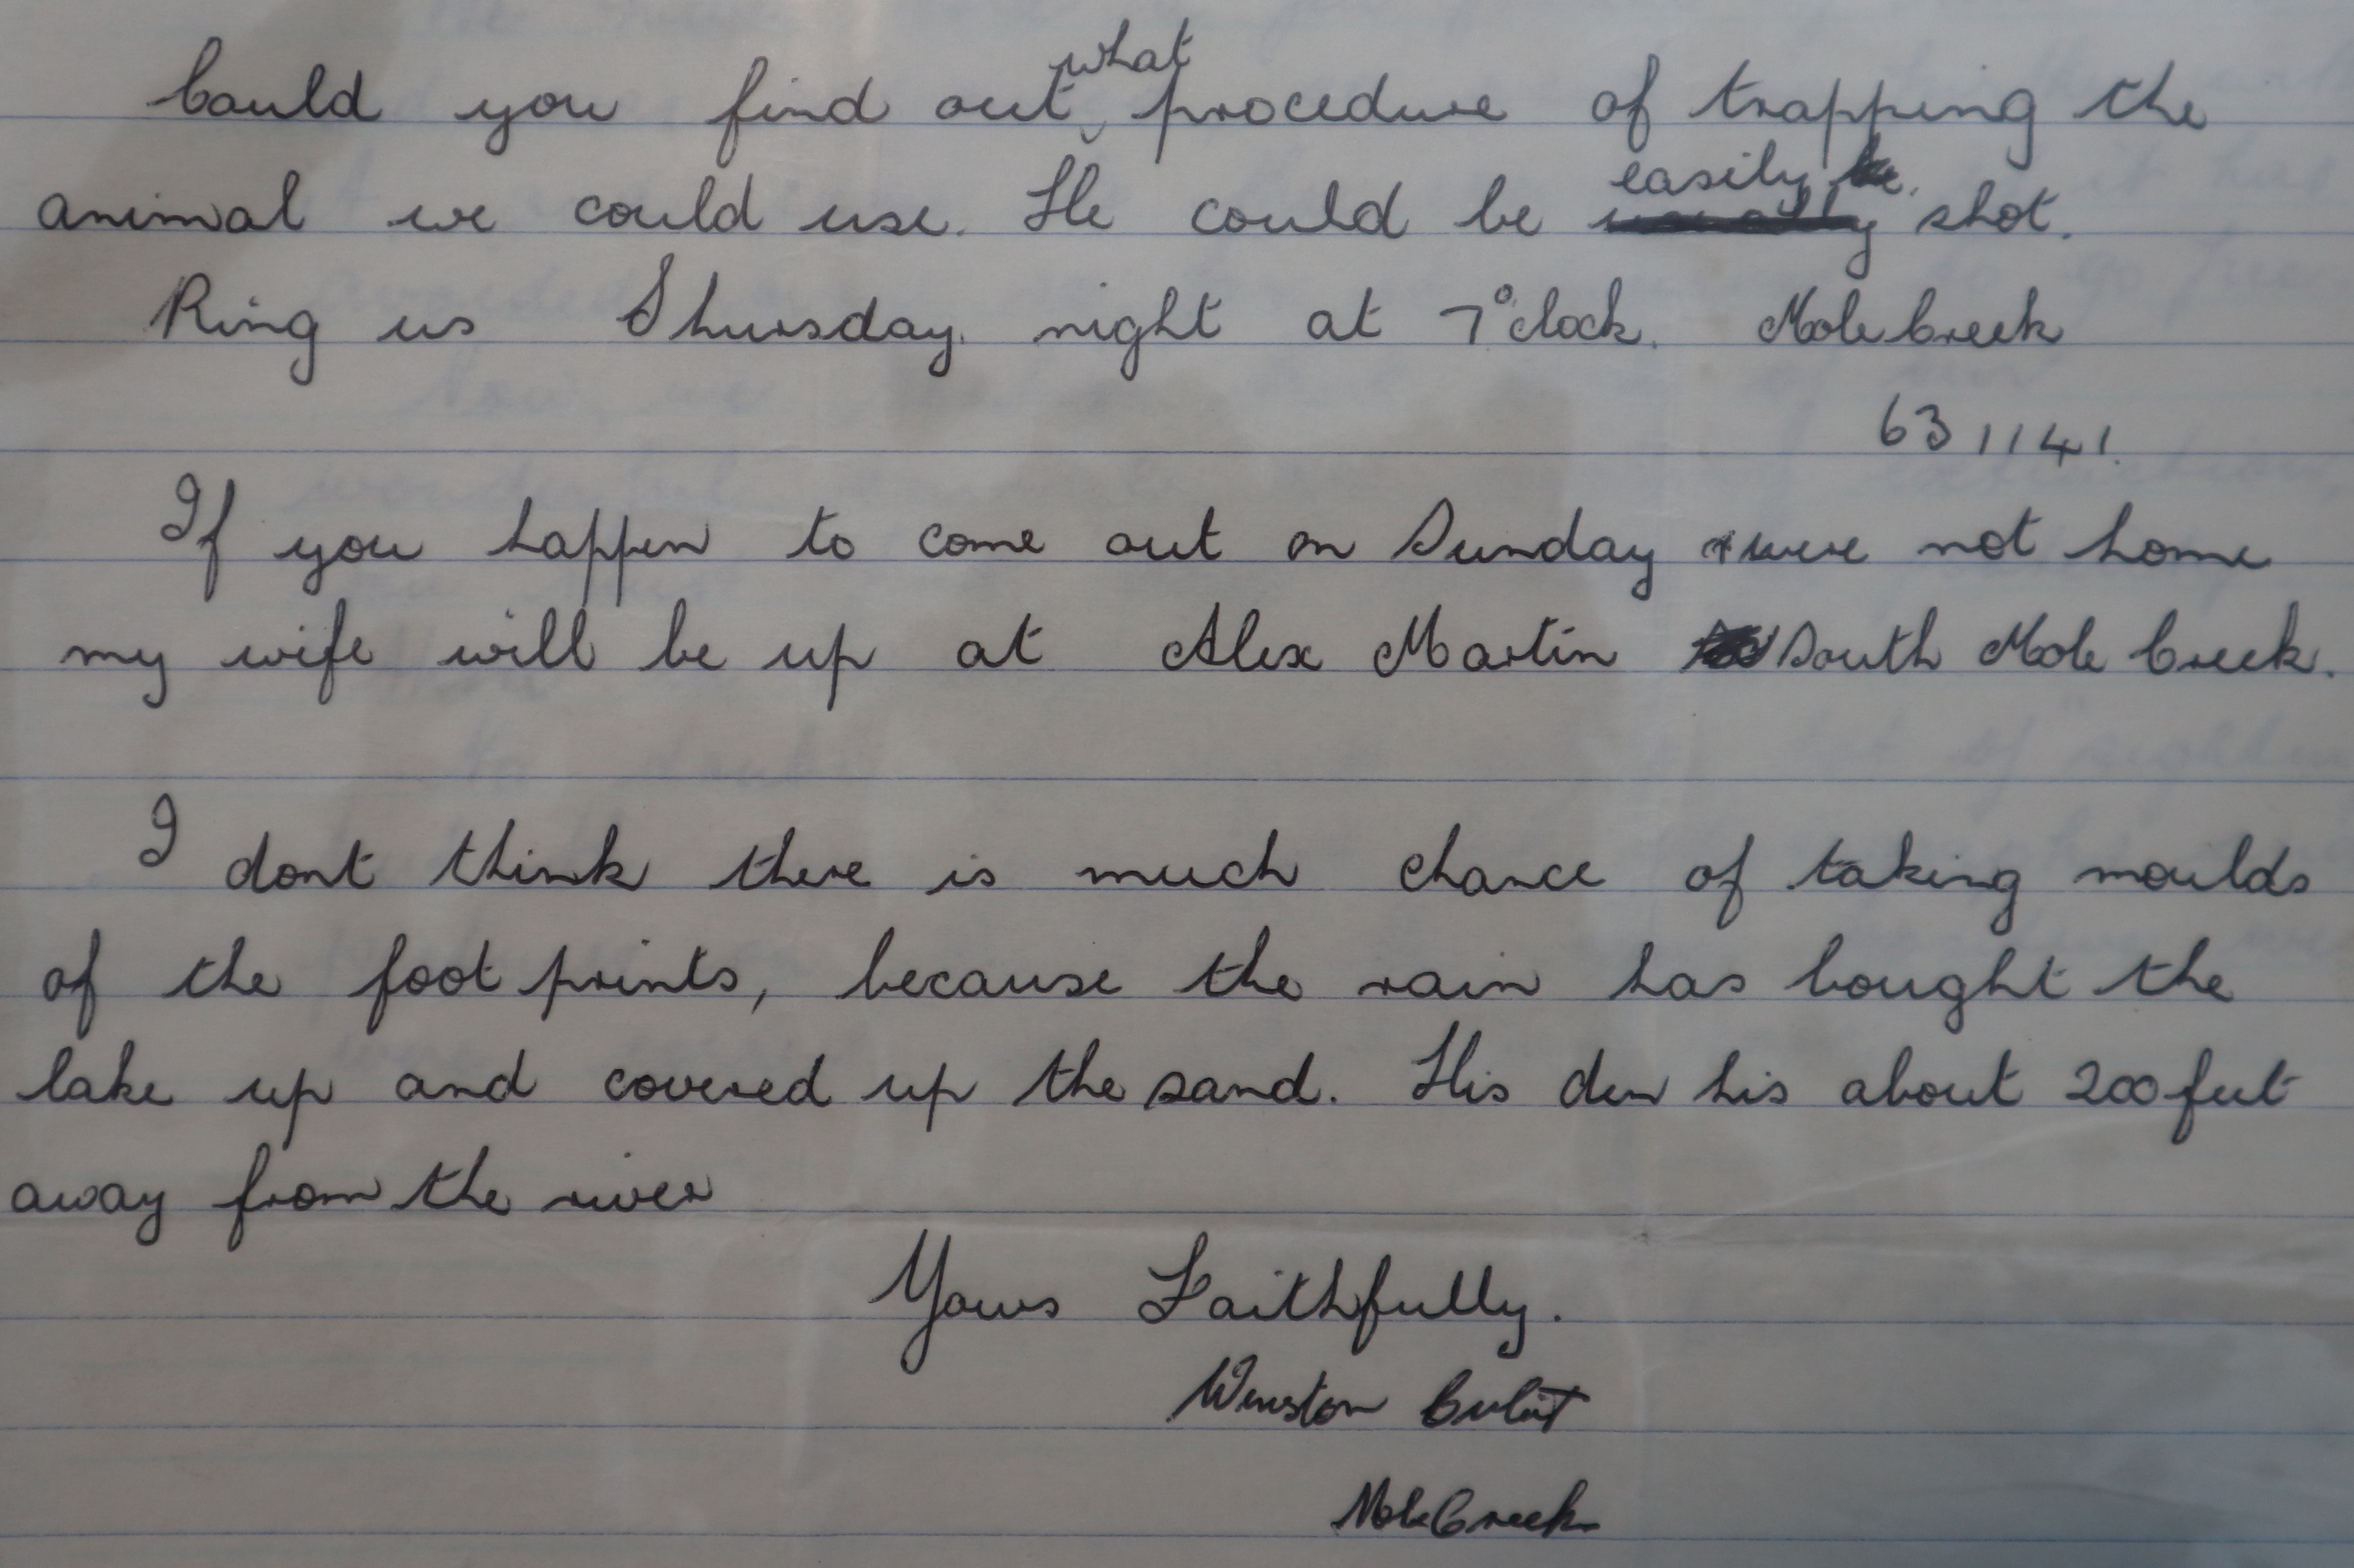 Could you find out what procedure of trapping the
animal we could use. He could be easily shot.
Ring us Thursday night at 7 o'clock. Mole Creek
631141.
If you happen to come out on Sunday + were not home
my wife will be up at Alex Martin South Mole Creek.
I dont think there is much chance of taking moulds
of the foot prints, because the rain has bought the
lake up and covered up the sand. His den his about 200 feet
away from the river
Yours Faithfully.
Winston
Mole Creek